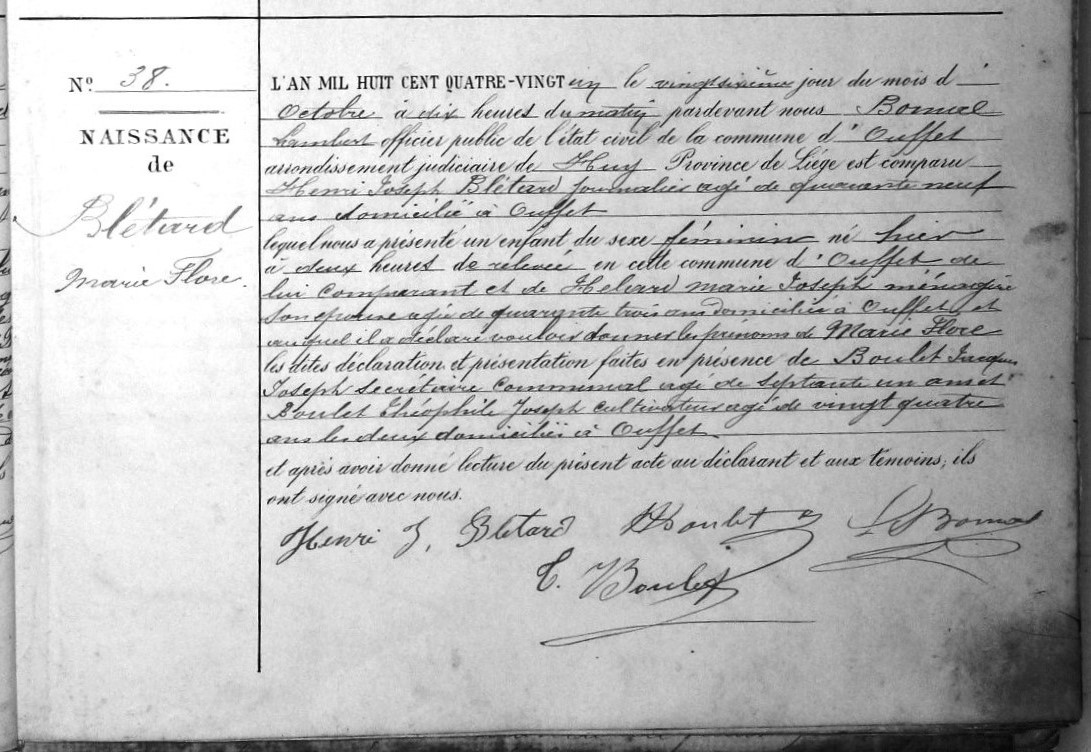 Nº 38.
NAISSANCE
de
Blétard
Marie Flore.
L'AN MIL HUIT CENT QUATRE-VINGT un le vingtsixième jour du mois d'
Octobre à dix heures du matin pardevant nous Bonmal
Lambert officier public de l'état civil de la commune d'Ouffet
arrondissement judiciaire de Huy Province de Liége est comparu
Henri Joseph Blétard journalier agé de quarante neuf
ans domicilié à Ouffet
lequel nous a présenté un enfant du sexe féminin né hier
à deux heures de relevée en cette commune d'Ouffet de
lui comparant et de Heliard marie Joseph ménagère
son épouse agée de quarante trois ans domiciliée à Ouffet et
auquel il a déclaré vouloir donner les prénoms de Marie Flore
les dites déclaration et présentation faites en présence de Boulet Jacques
Joseph Secrétaire Communal agé de septante un ans et
Boulet Théophile Joseph cultivateur agé de vingt quatre
ans les deux domiciliés à Ouffet
et après avoir donné lecture du présent acte au déclarant et aux témoins, ils
ont signé avec nous.
Henri J, Bletard Boulet Bonmal
T. Boulet